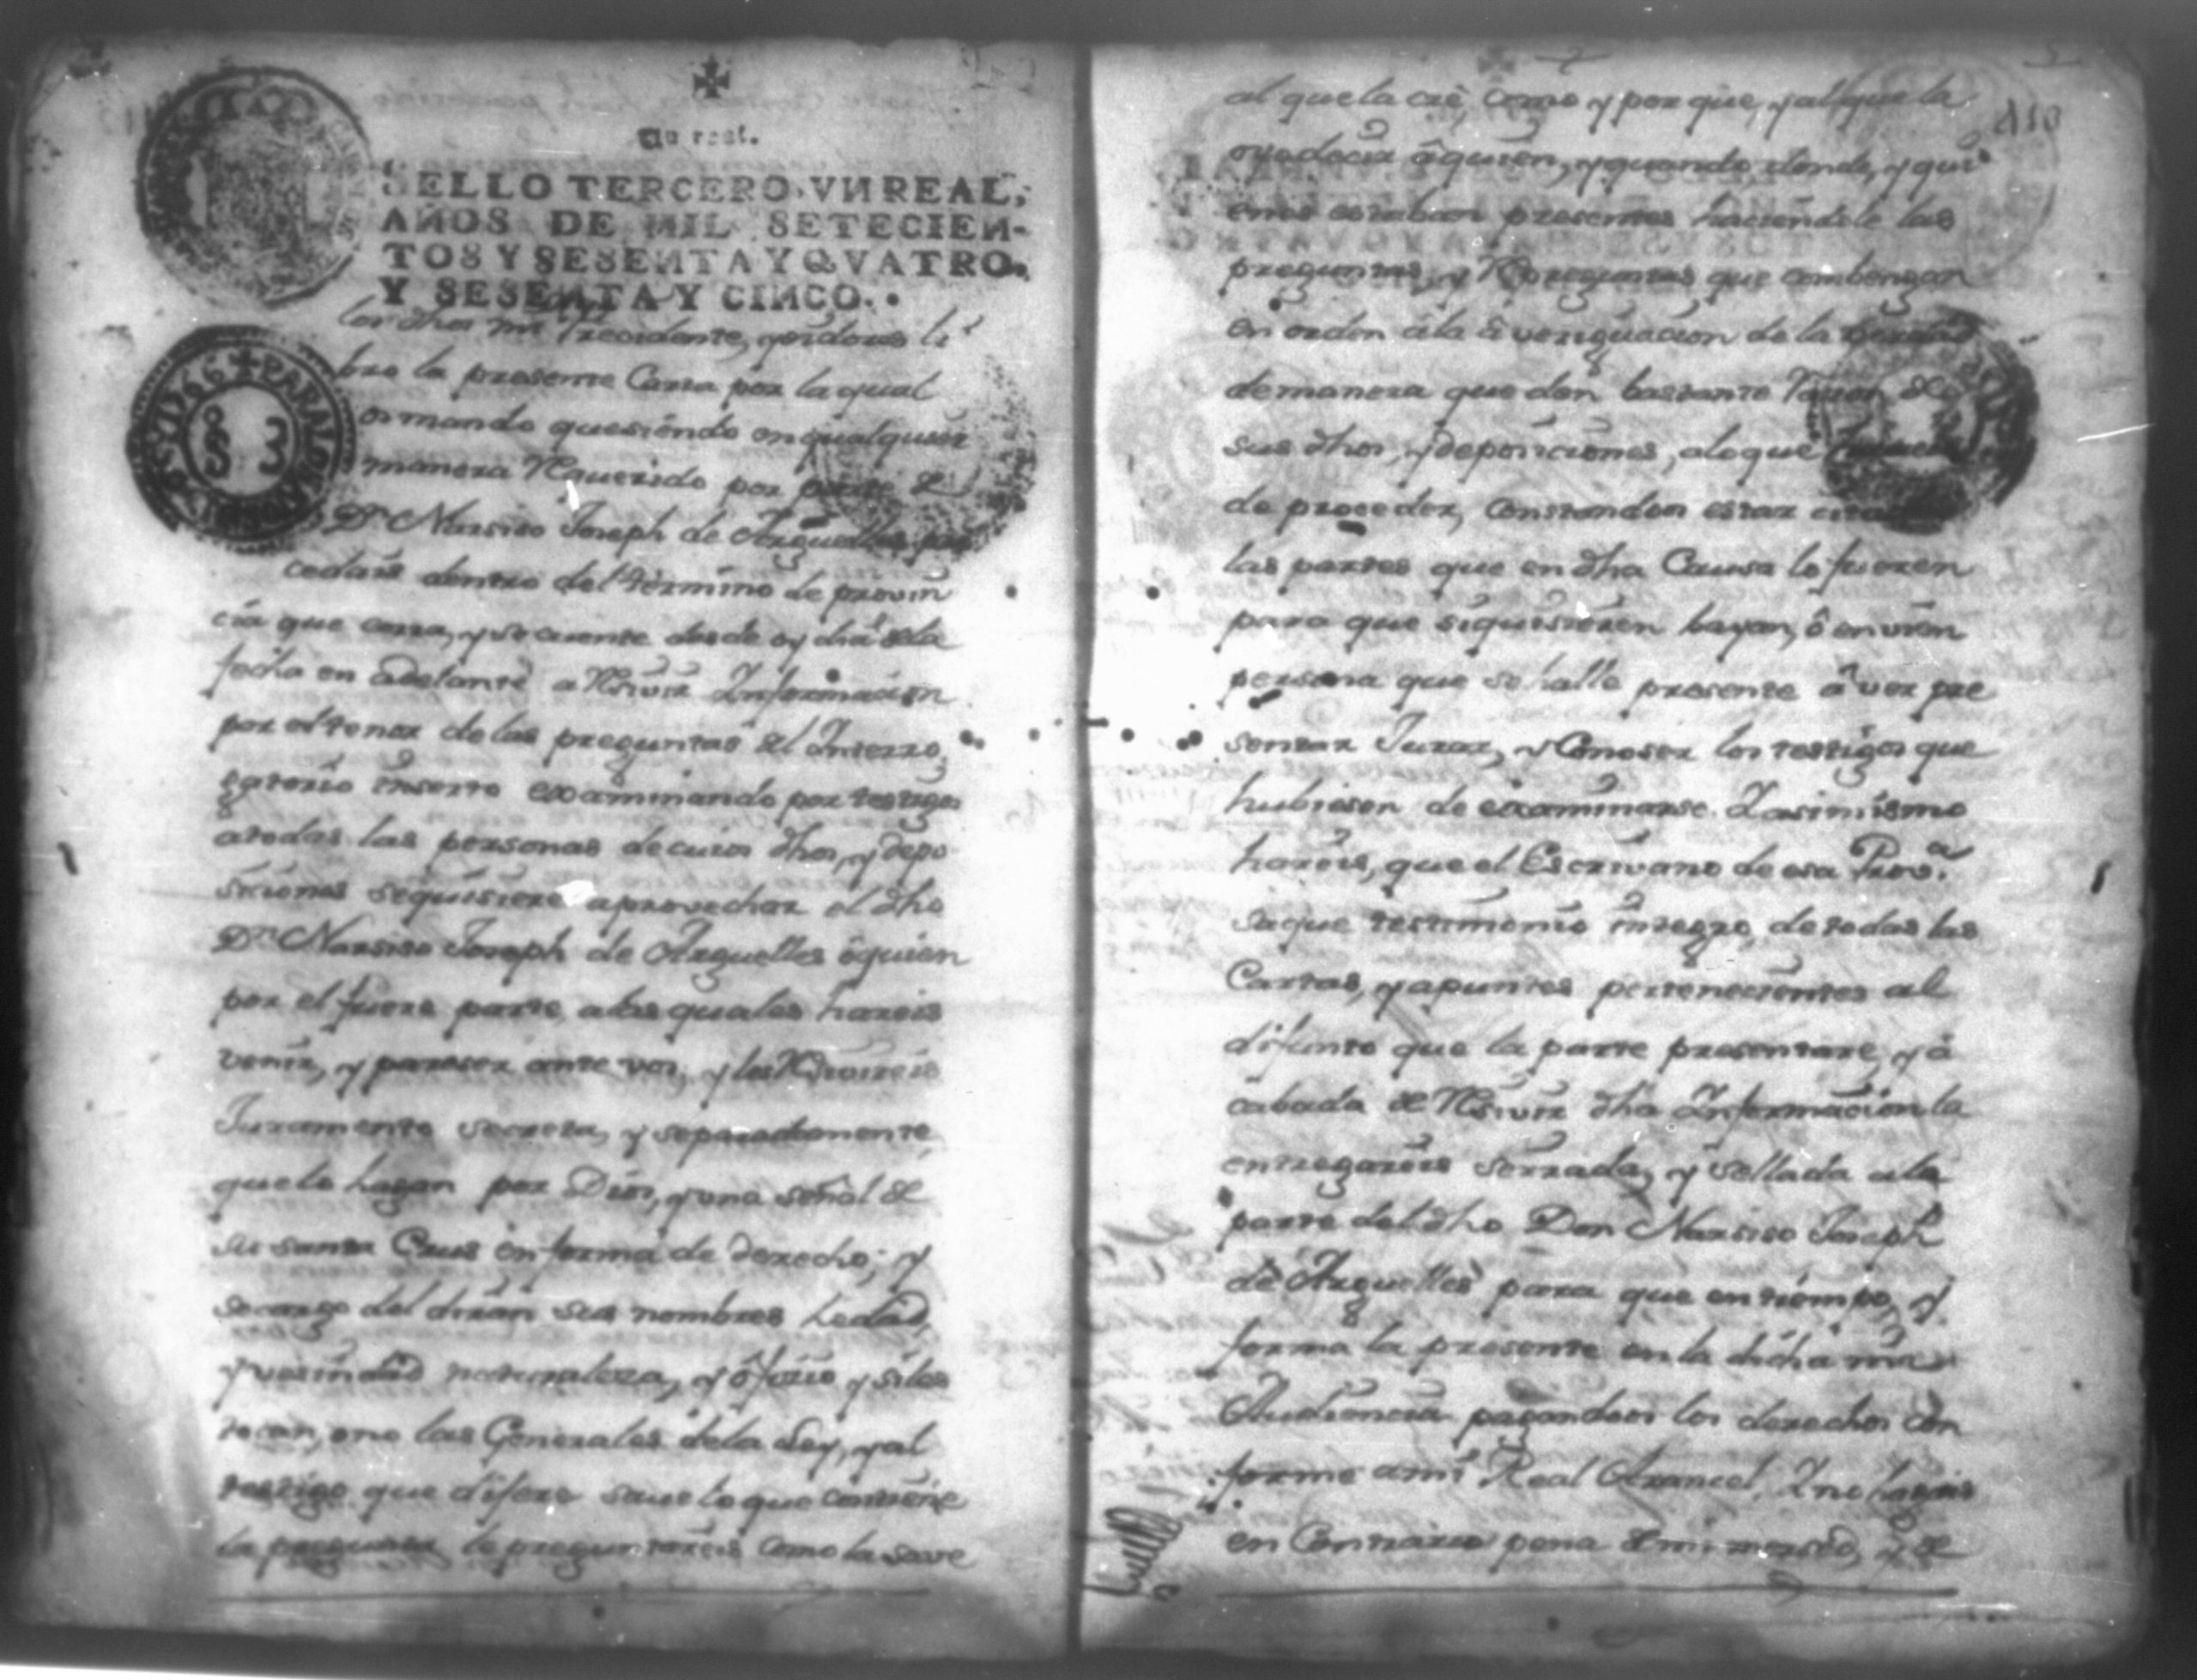 Un real.
SELLO TERCERO, VN REAL,
AÑOS DE MIL SETECIEN-
TOS Y SESENTA Y QVATRO,
Y SESENTA Y CINCO.
los dhos mi Precidente, yoidores li
bro la presente Carta por la qual
os mando quesiendo enqualquier
manera Rquerido por parte de
Dn Narsiso Joseph de Arguelles pro
cedais dentro del termino de provin
cia que corra, y se cuente desde oy dia de la
fecha en adelante a Rsivir Informacion
por el tenor de las preguntas del Interro
gatorio inserto examinando por testigos
atodas las personas decuios dhos, y depo
siciones sequisiere aprovechar el dho
Dn Narsiso Joseph de Arguelles ô quien
por el fuere parte, alas quales hareis
venir, y pareser ante vos, y les Rsivireis
Juramento secreta, y separadamente,
que lo hagan por Dios, y una señal de
su santa Crus en forma de derecho; y
so cargo del diran sus nombres hedad,
y vesindad naturaleza, y ôficio y siles
tocan, ono las Generales dela Ley, y al
testigo que dijere save lo que contiene
la pregunta le preguntareis como la save
al que la cre, como y por que, y al que la
oyo decir âquien, y quando donde, y qui
enes estaban presentes haciendole las
preguntas, y Rpreguntas que combengan
en orden ála âveriguacion de la verdad
demanera que den bastante razon de
sus dhos, y deposiciones, alo que
de proceder, constandon estar citadas
las partes que en dha Causa lo fueren
para que siquisieren bayan, ô envien
persona que se halle presente â ver pre
sentar Jurar, y Conoser los testigos que
hubiesen de examinarse. Y asimismo
hareis, que el Escrivano de esa Prova.
saque testimonio integro, de todas las
Cartas, y apuntes pertenecientes al
difunto que la parte presentare, y â
cabada de Rsivir dha Informacion la
entregareis serrada, y sellada a la
parte del dho Don Narsiso Joseph
de Arguelles para que en tiempo, y
forma la presente en la dicha mi
Audiencia pagandoos los derechos con
forme ami Real Arancel, Y no hagais
en Contrario pena de mi mersed, y de